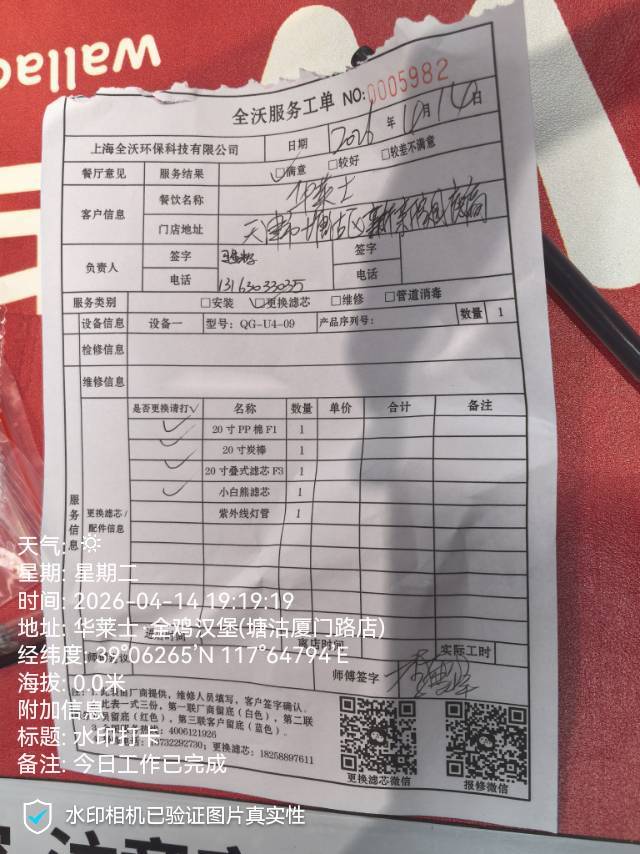 wallac
全沃服务工单 NO:0005982
上海全沃环保科技有限公司 日期 2026 年 4月 14日
餐厅意见 服务结果 ☑满意 □较好 □较差不满意
客户信息 餐饮名称 华莱士
门店地址 天津市塘沽区
负责人 签字 签字
电话 13163033035 电话
服务类别 □安装 ☑更换滤芯 □维修 □管道消毒
设备信息 设备一 型号: QG-U4-09 产品序列号: 数量 1
检修信息
维修信息
服务信息
更换滤芯/配件信息
是否更换请打√ 名称 数量 单价 合计 备注
✓ 20寸PP棉F1 1
✓ 20寸炭棒 1
✓ 20寸叠式滤芯F3 1
✓ 小白熊滤芯 1
紫外线灯管 1
进店时间 离店时间 实际工时
师傅签字
注:1.此表由厂商提供，维修人员填写，客户签字确认。
此表一式三份，第一联厂商留底（白色），第二联
员留底（红色），第三联客户留底（蓝色）。
4006121926
3732292730; 更换滤芯: 18258897611
更换滤芯微信 报修微信
天气:
星期: 星期二
时间: 2026-04-14 19:19:19
地址: 华莱士·全鸡汉堡(塘沽厦门路店)
经纬度: 39°06265'N 117°64794'E
海拔: 0.0米
附加信息
标题: 水印打卡
备注: 今日工作已完成
水印相机已验证图片真实性